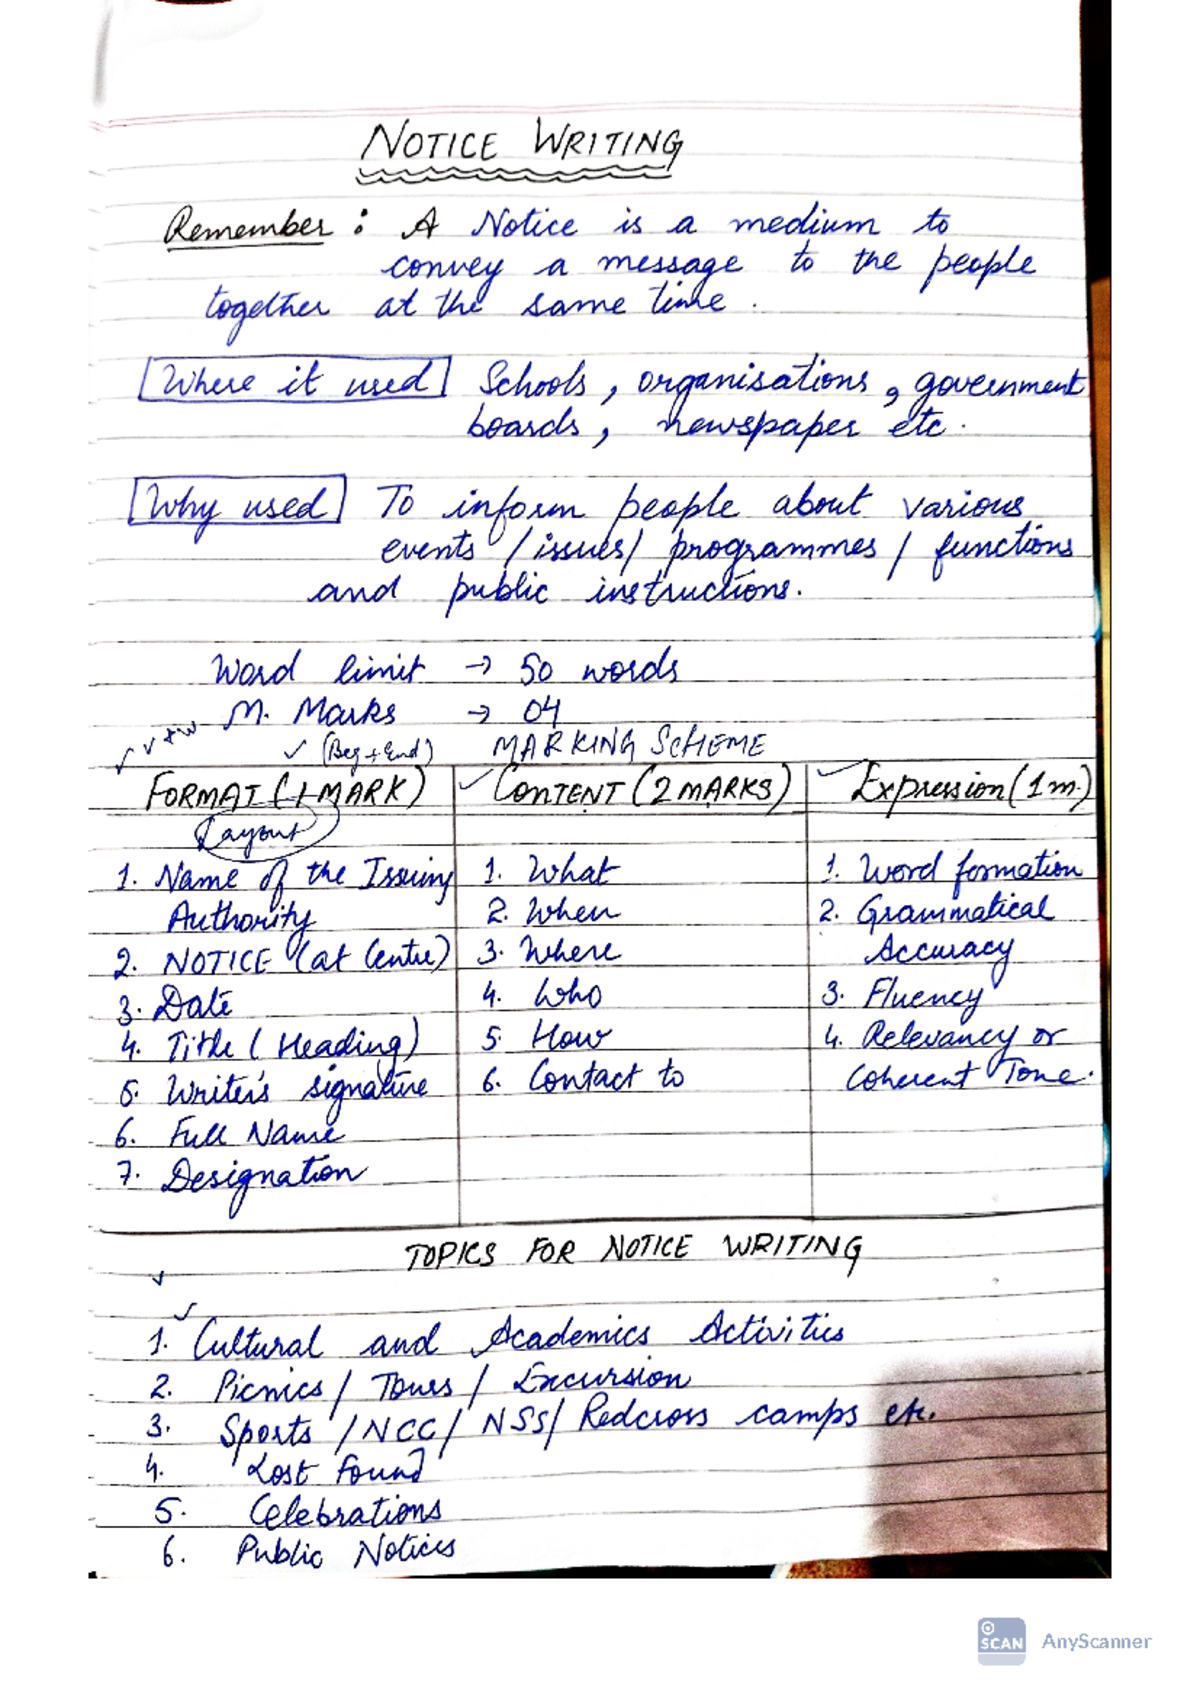 NOTICE WRITING
Remember : A Notice is a medium to
convey a message to the people
together at the same time.
Where it used Schools, organisations, government
boards, newspaper etc.
Why used To inform people about various
events / issues / programmes / functions
and public instructions.
Word limit → 50 words
M. Marks → 04
(Beg + End) MARKING SCHEME
FORMAT (1 MARK) CONTENT (2 MARKS) Expression (1 m.)
Layout
1. Name of the Issuing 1. What 1. Word formation
Authority 2. When 2. Grammatical
2. NOTICE (at Centre) 3. Where Accuracy
3. Date 4. Who 3. Fluency
4. Title ( Heading) 5. How 4. Relevancy or
5. Writer's signature 6. Contact to Coherent Tone.
6. Full Name
7. Designation
TOPICS FOR NOTICE WRITING
1. Cultural and Academics Activities
2. Picnics / Tours / Excursion
3. Sports / NCC / NSS / Redcross camps etc.
4. Lost Found
5. Celebrations
6. Public Notices
SCAN AnyScanner